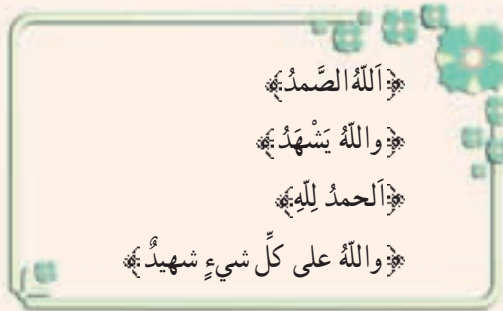 ﴿اَللّهُ الصَّمدُ﴾
﴿واللّهُ يَشْهَدُ﴾
﴿اَلحمدُ لِلّهِ﴾
﴿واللّهُ على كلِّ شيءٍ شهيدٌ﴾